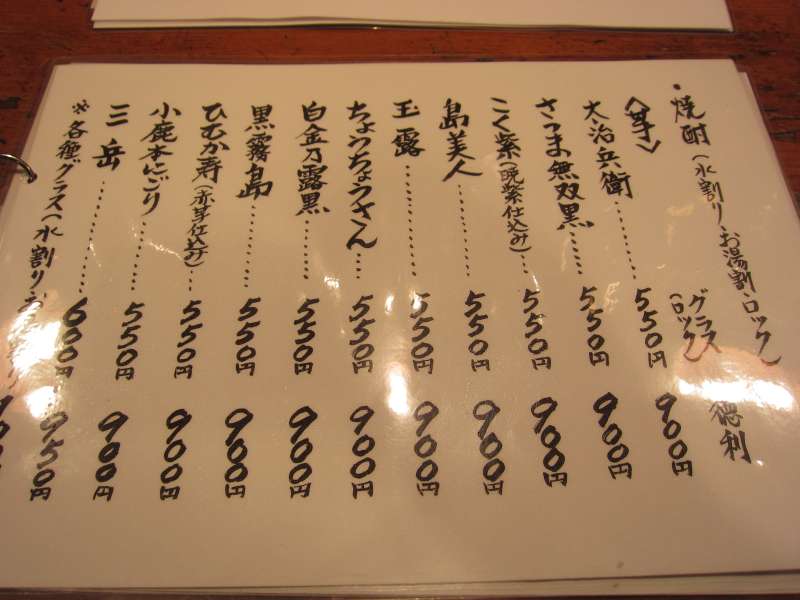 ・焼酎(水割り・お湯割・ロック)
〈芋〉 グラス(ロック) 徳利
大治兵衛……550円 900円
さつま無双黒……550円 900円
こく紫(紫仕込み)……550円 900円
島美人……550円 900円
玉露……550円 900円
ちょうちょうさん……550円 900円
白金乃露黒……550円 900円
黒霧島……550円 900円
ひむか寿(赤芽仕込み)……550円 900円
小鹿本にごり……550円 900円
三岳……600円 950円
※各種グラス(水割りお